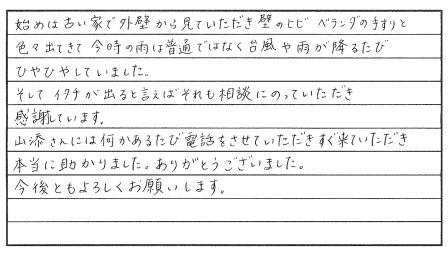 始めは古い家で外壁から見ていただき壁のヒビ ベランダの手すりと
色々出てきて今時の雨は普通ではなく台風や雨が降るたび
ひやひやしていました。
そしてイタチが出ると言えばそれも相談にのっていただき
感謝しています。
山添さんには何かあるたび電話をさせていただきすぐ来ていただき
本当に助かりました。ありがとうございました。
今後ともよろしくお願いします。